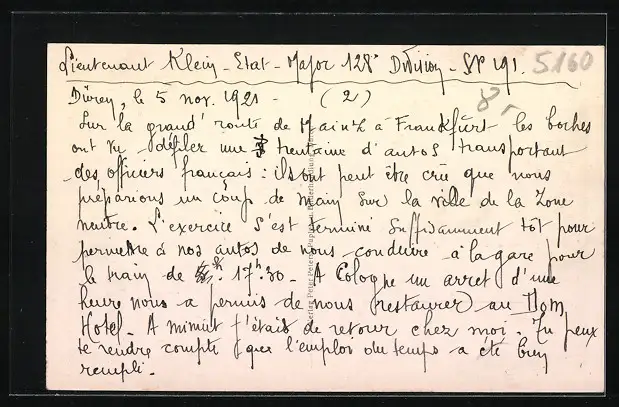 Lieutenant Klein - Etat - Major 128e Division - SP 191.
5160
Düren, le 5 nov. 1921 - (2)
8
Sur la grand' route de Mainz à Frankfürt les boches
ont vu défiler une trentaine d'autos transportant
des officiers français : ils ont peut être cru que nous
préparions un coup de main sur la ville de la Zone
neutre. L'exercice s'est terminé suffisamment tôt pour
permettre à nos autos de nous conduire à la gare pour
le train de 17h.30. A Cologne un arret d'une
heure nous a permis de nous (restaurer) au Dom
Hotel. A minuit j'étais de retour chez moi. Tu peux
te rendre compte que l'emploi du temps a été bien
rempli.